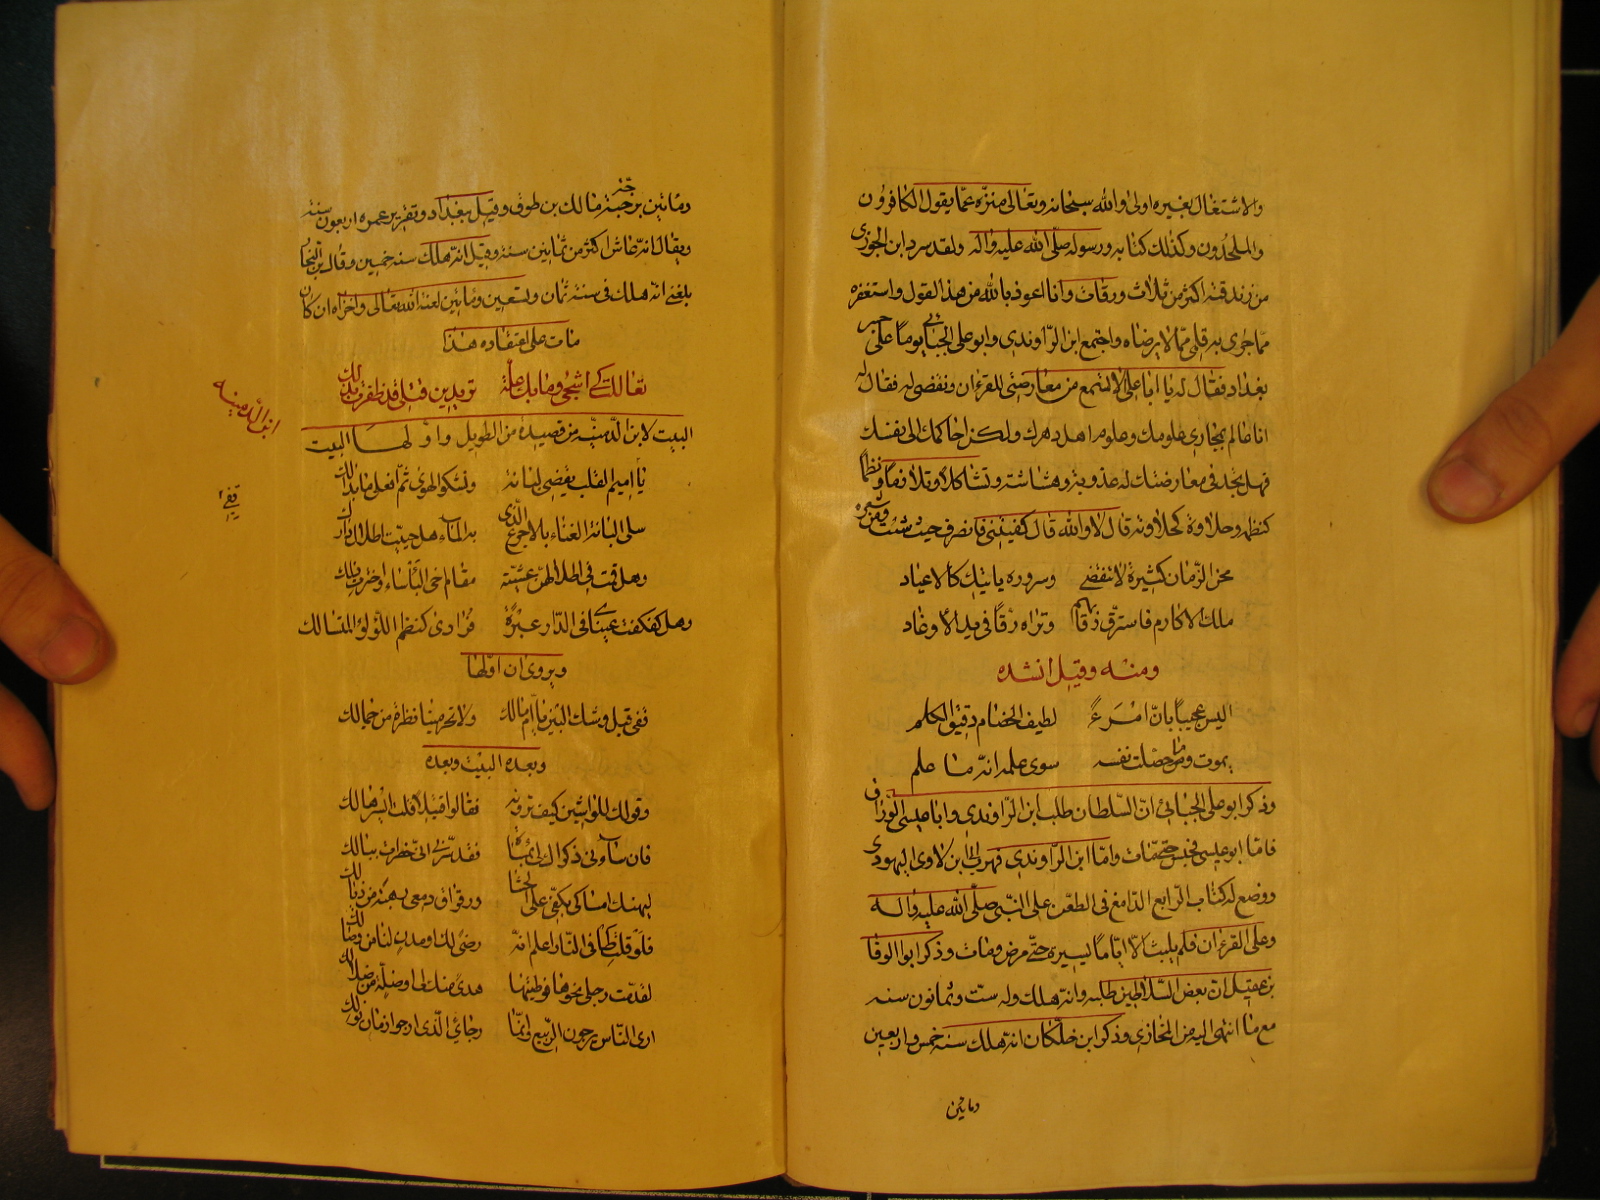 والاشتغال بغيره اولى والله سبحانه وتعالى منزه عما يقول الكافرون
والملحدون وكذلك كتابه ورسوله صلى الله عليه واله ولقد سرد ابن الجوزى
من زندقته اكثر من ثلاث ورقات وانا اعوذ بالله من هذا القول واستغفره
مما جرى به قلمى مما لا يرضاه واجتمع ابن الراوندي وابو على الجبائى يوما على جسر
بغداد فقال له يا ابا على الا تسمع من معارضتى للقرءان ونقضى له فقال له
انا عالم بمجارى علومك وعلوم اهل دهرك ولكن احاكمك الى نفسك
فهل تجد فى معارضتك له عذوبة وهشاشة وتشاكلا وتلازما ونظما
كنظمه وحلاوة كحلاوته قال لا والله قال كفيتنى فانصرف حيث شئت ومن شعره
محن الزمان كثيرة لا تنقضي وسروره ياتيك كالاعياد
ملك الاكارم فاسترق رقابا وتراه رقا فى يد الاوغاد
ومنه وقيل انشده
اليس عجيبا بان امرءً لطيف الخصام دقيق الكلم
يموت وما حصلت نفسه سوى علمه انه ما علم
وذكر ابو على الجبائي ان السلطان طلب ابن الراوندي وابا عيسى الوراق
فاما ابو عيسى فحبس حتى مات واما ابن الراوندي فهرب الى ابن لاوى اليهودى
ووضع له كتاب الرابع الدامغ فى الطعن على النبى صلى الله عليه واله
وعلى القرءان فلم يلبث الا اياما يسيرة حتى مرض ومات وذكر ابو الوفا
بن عقيل ان بعض السلاطين طلبه وانه هلك وله ست وثمانون سنه
مع ما انتهى اليه من المخازي وذكر ابن خلكان انه هلك سنه خمس واربعين
ومايتين
ومايتين برحبة مالك بن طوق وقيل ببغداد وتقرير عمره اربعون سنه
ويقال انه عاش اكثر من ثمانين سنة وقيل انه هلك سنه خمسين وقال بن النجار
بلغنى انه هلك فى سنة ثمان وتسعين ومائتين لعنه الله تعالى واخزاه ان كان
مات على اعتقاده هذا
تعاللت كى اشجى وما بك علة تريدين قتلى قد ظفرت بذلك
ابن الدمينه
البيت لابن الدمينة من قصيدة من الطويل واولها البيت
يا اميم القلب نقضى لبانة ونشكو الهوى ثم افعلى ما بدا لك
قفى
سلى البانة الغناء بالاجرع الذى به الماء هل حييت اطلال دارك
وهل قمت فى اطلالهن عشية مقام اخى البأساء واخترت ذلك
وهل كفكفت عيناي فى الدار عبرة فرادى كنظم اللؤلؤ المتسالك
ويروى ان اولها
قفى قبل وشك البين يا ام مالك ولا تحرمينا نظرة من جمالك
وبعده البيت وبعده
وقولك للواشين كيف ترونه فقالوا قتيلا قلت ايسر هالك
لقدمت رجلى نحوها فوطئتها هدى منك لى او ضلة من ضلالك
ارى الناس يرجون الربيع وانما رجائي الذى ارجو ازمان نوالك